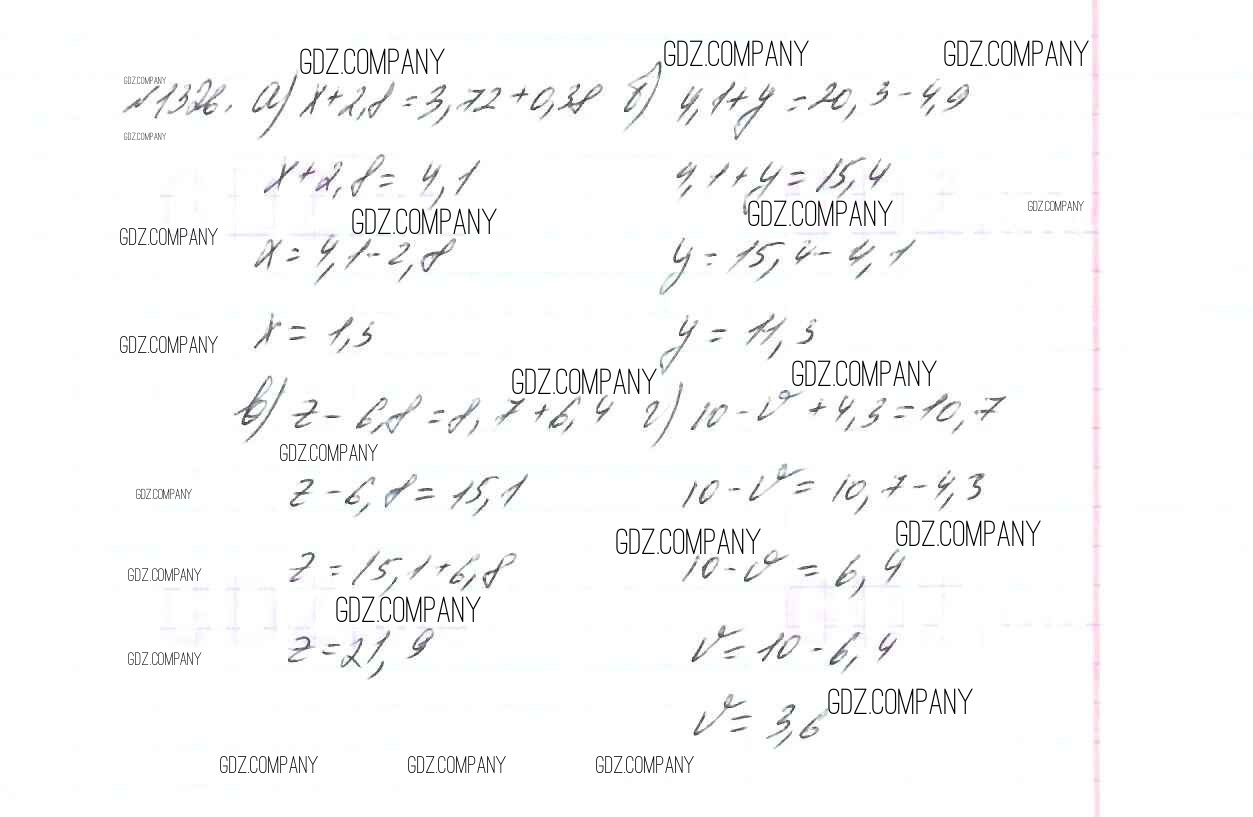 GDZ.COMPANY GDZ.COMPANY GDZ.COMPANY
GDZ.COMPANY
№1326. а) x+2,8=3,72+0,38 б) 4,1+y=20,3-4,9
GDZ.COMPANY
x+2,8=4,1 4,1+y=15,4
GDZ.COMPANY GDZ.COMPANY GDZ.COMPANY
GDZ.COMPANY
x=4,1-2,8 y=15,4-4,1
GDZ.COMPANY x=1,3 y=11,3
GDZ.COMPANY GDZ.COMPANY
в) z-6,8=8,7+6,4 г) 10-v+4,3=10,7
GDZ.COMPANY
GDZ.COMPANY z-6,8=15,1 10-v=10,7-4,3
GDZ.COMPANY GDZ.COMPANY
GDZ.COMPANY z=15,1+6,8 10-v=6,4
GDZ.COMPANY
GDZ.COMPANY z=21,9 v=10-6,4
v=3,6 GDZ.COMPANY
GDZ.COMPANY GDZ.COMPANY GDZ.COMPANY